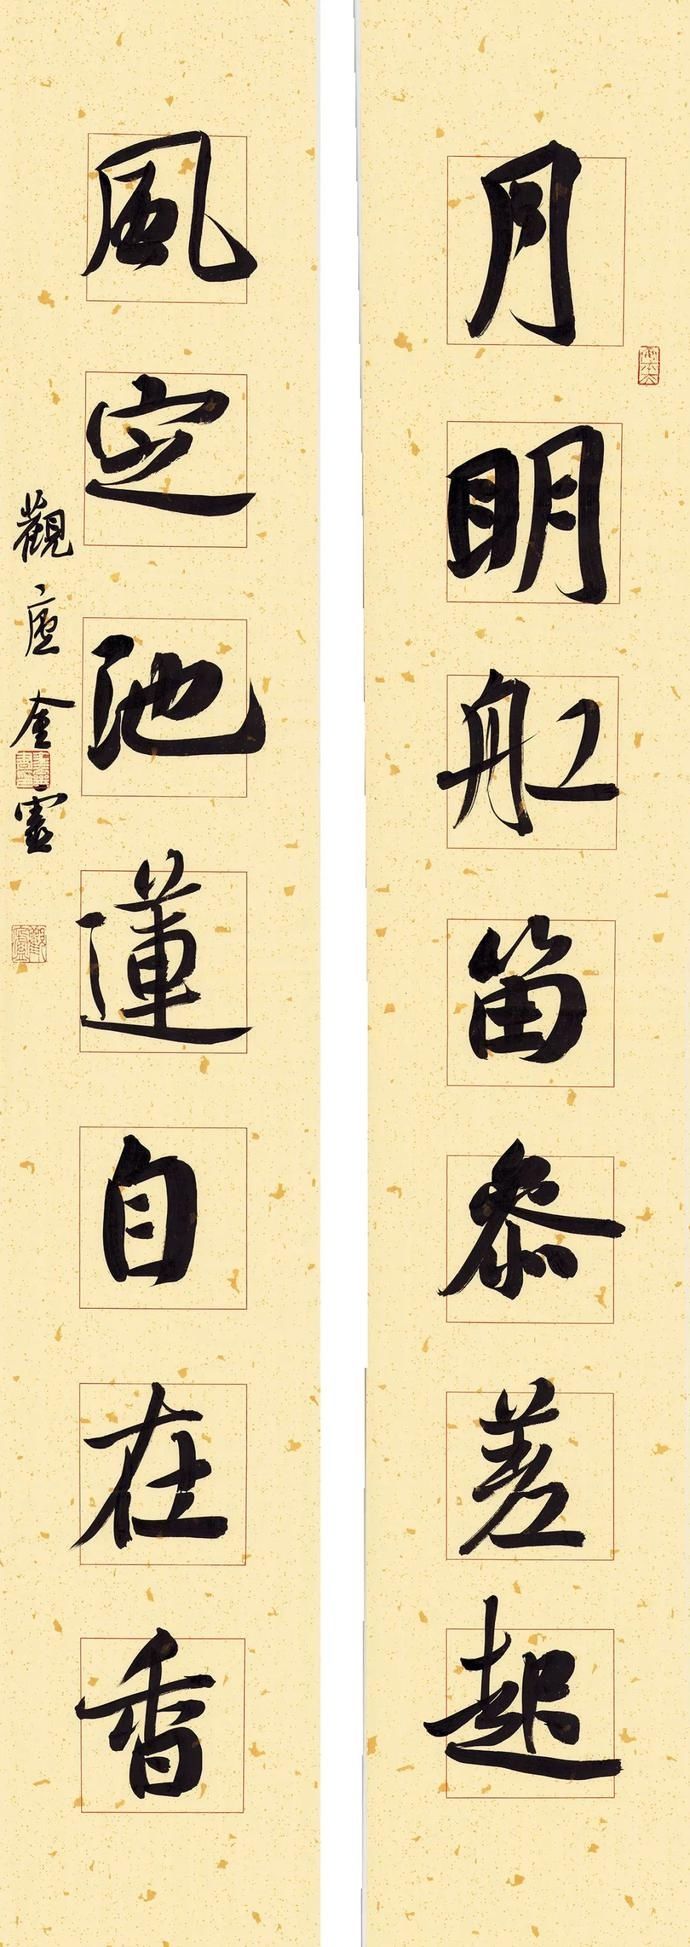 月明舡笛參差起
風定池蓮自在香
觀廬金靈